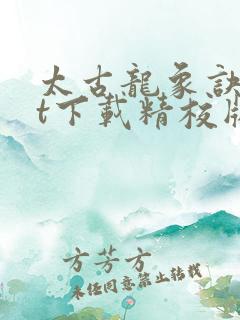 太古龍象訣
t下載精校版
方芳方
未經同意禁止轉載